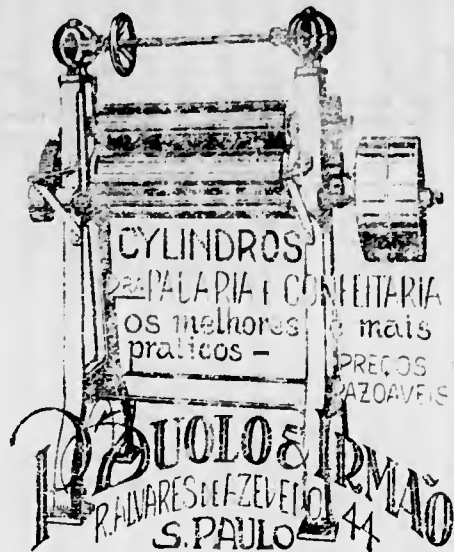 CYLINDROS
PRA PADARIA E CONFEITARIA
os melhores e mais
praticos –
PREÇOS
RAZOAVEIS
& IRMAÕ
R. ALVARES DE AZEVEDO 44
S. PAULO